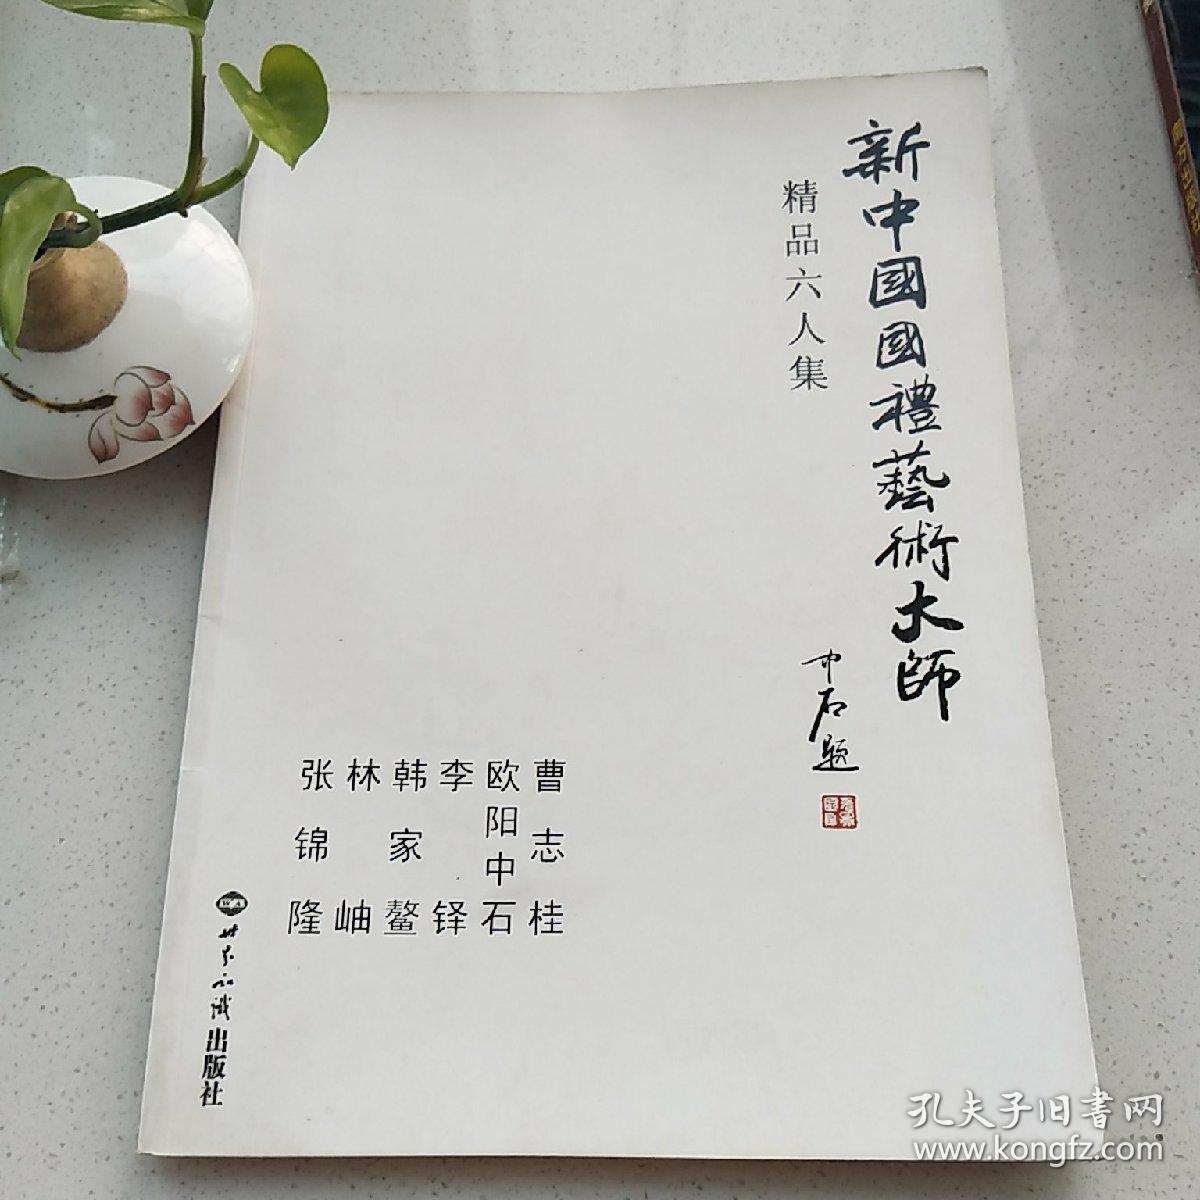 新中國國禮藝術大師
精品六人集
中石题
曹志桂
欧阳中石
李铎
韩家鳌
林岫
张锦隆
WA
世界知识出版社
孔夫子旧書网
www.kongfz.com